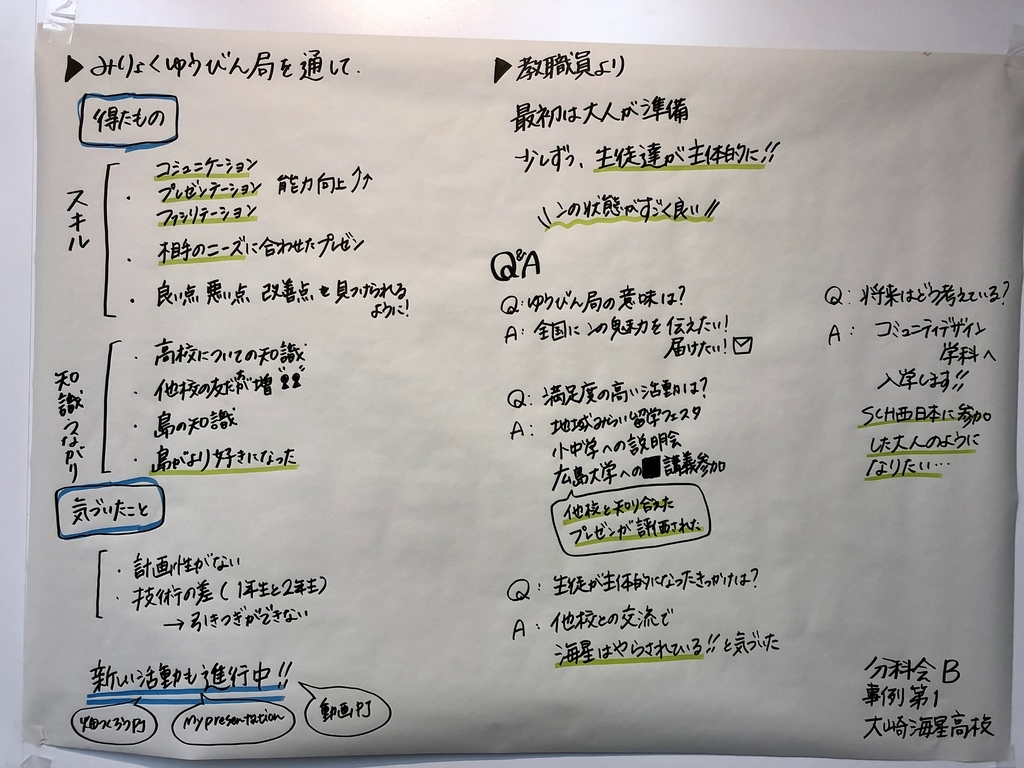 ▶みりょくゆうびん局を通して.
得たもの
スキル
・コミュニケーション
プレゼンテーション 能力向上↑↑
ファシリテーション
・相手のニーズに合わせたプレゼン
・良い点 悪い点 改善点を見つけられる
ように!
知識 つながり
・高校についての知識
・他校の友だちが増
・島の知識
・島がより好きになった
気づいたこと
・計画性がない
・技術の差(1年生と2年生)
→引きつぎができない
新しい活動も進行中!!
畑つくろうPJ
My presentation
動画PJ
▶教職員より
最初は大人が準備
少しずつ、生徒達が主体的に!!
\\この状態がすごく良い//
Q&A
Q:ゆうびん局の意味は?
A:全国にこの魅力を伝えたい!
届けたい!
Q:満足度の高い活動は?
A:地域みらい留学フェスタ
小中学への説明会
広島大学への講義参加
他校と知り合えた
プレゼンが評価された
Q:生徒が主体的になったきっかけは?
A:他校との交流で
海星はやらされている!!と気づいた
Q:将来はどう考えている?
A:コミュニティデザイン
学科へ
入学します!!
SCH西日本に参加
した大人のように
なりたい…
分科会B
事例第1
大崎海星高校